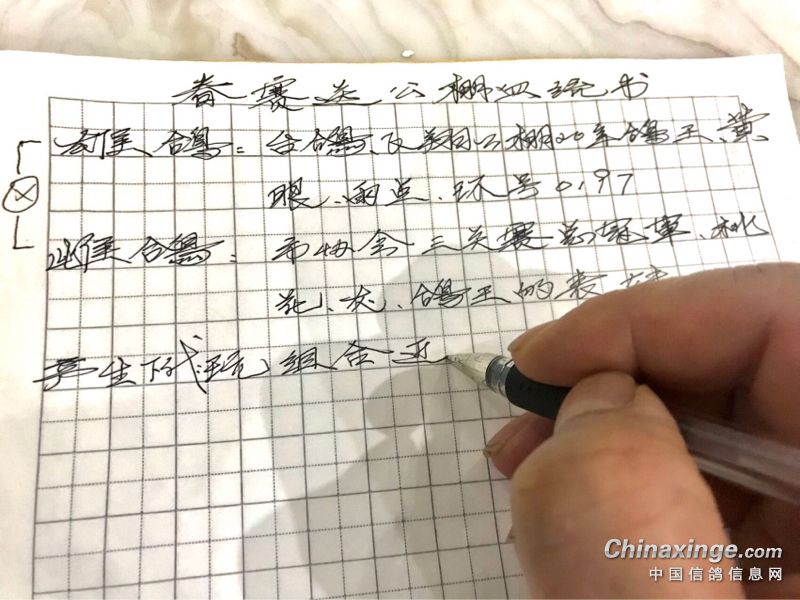 春赛送公棚血统书
父系 合鸽：台鸽、飞翔公棚20年鸽王、黄
眼、雨点、环号0197
合鸽：市协会三关赛总冠军、桃
花、灰、鸽王的表
产生下代 组合
Chinaxinge.com
中国信鸽信息网